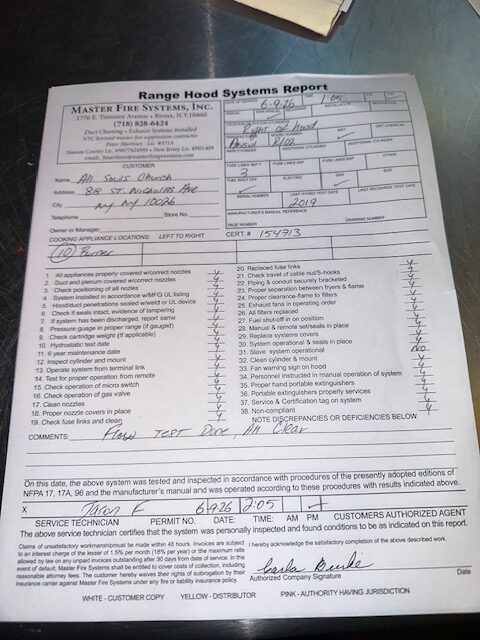 Range Hood Systems Report
MASTER FIRE SYSTEMS, INC.
1776 E. Tremont Avenue • Bronx, N.Y. 10460
(718) 828-6424
Duct Cleaning • Exhaust Systems Installed
NYC licensed master fire suppression contractor
Peter Martinez - Lic. #371A
DATE OF SERVICE 6-9-26
TIME 1:05
INSTALLATION
LOCATION OF SYSTEM CYLINDERS
Right of hood
WET
DRY CHEMICAL
Ansul R102
ADDITIONAL CYLINDER
ADDITIONAL CYLINDER
CUSTOMER
Name All Souls Church
Address 88 ST. Nicholas Ave
City NY NY 10026
Telephone Store No.
Owner or Manager
FUSE LINKS
3
OTHER
FUEL SHUT OFF
ELECTRIC
GAS
SIZE
SERIAL NUMBER
LAST HYDRO TEST DATE
2019
LAST RECHARGE TEST DATE
MANUFACTURER'S MANUAL REFERENCE
PAGE NUMBER
DRAWING NUMBER
CERT. # 154713
COOKING APPLIANCE LOCATIONS: LEFT TO RIGHT
(10) Burner
1. All appliances properly covered w/correct nozzles Y
2. Duct and plenum covered w/correct nozzles Y
3. Check positioning of all nozzles Y
4. System installed in accordance w/MFG UL listing Y
5. Hood/duct penetrations sealed w/weld or UL device Y
6. Check if seals intact, evidence of tampering Y
7. If system has been discharged, report same Y
8. Pressure guage in proper range (if gauged) Y
9. Check cartridge weight (if applicable) Y
10. Hydrostatic test date Y
11. 6 year maintenance date Y
12. Inspect cylinder and mount Y
13. Operate system from terminal link Y
14. Test for proper operation from remote Y
15. Check operation of micro switch Y
16. Check operation of gas valve Y
17. Clean nozzles Y
18. Proper nozzle covers in place Y
19. Check fuse links and clean Y
20. Replaced fuse links Y
21. Check travel of cable nut/S-hooks Y
22. Piping & conduit securely bracketed Y
23. Proper separation between fryers & flame Y
24. Proper clearance-flame to filters Y
25. Exhaust fans in operating order Y
26. All filters replaced Y
27. Fuel shut-off in on position Y
28. Manual & remote set/seals in place Y
29. Replace systems covers Y
30. System operational & seals in place Y
31. Slave system operational NO
32. Clean cylinder & mount Y
33. Fan warning sign on hood Y
34. Personnel instructed in manual operation of system Y
35. Proper hand portable extinguishers Y
36. Portable extinguishers properly services Y
37. Service & Certification tag on system Y
38. Non-compliant Y
NOTE DISCREPANCIES OR DEFICIENCIES BELOW
COMMENTS: Flow TEST Done, All Clear
On this date, the above system was tested and inspected in accordance with procedures of the presently adopted editions of
NFPA 17, 17A, 96 and the manufacturer's manual and was operated according to these procedures with results indicated above.
X Jaron F 6926 2:05
SERVICE TECHNICIAN PERMIT NO. DATE: TIME: AM PM CUSTOMERS AUTHORIZED AGENT
The above service technician certifies that the system was personally inspected and found conditions to be as indicated on this report.
Claims of unsatisfactory workmanship must be made within 48 hours. Invoices are subject
to an interest charge of the lesser of 1.5% per month (18% per year) or the maximum rate
allowed by law on any unpaid invoices outstanding after 30 days from date of service. In the
event of default, Master Fire Systems shall be entitled to cover costs of collection, including
reasonable attorney fees. The customer hereby waives their rights of subrogation by their
insurance carrier against Master Fire Systems under any fire or liability insurance policy.
I hereby acknowledge the satisfactory completion of the above described work.
Carla Burke
Authorized Company Signature Date
WHITE - CUSTOMER COPY YELLOW - DISTRIBUTOR PINK - AUTHORITY HAVING JURISDICTION